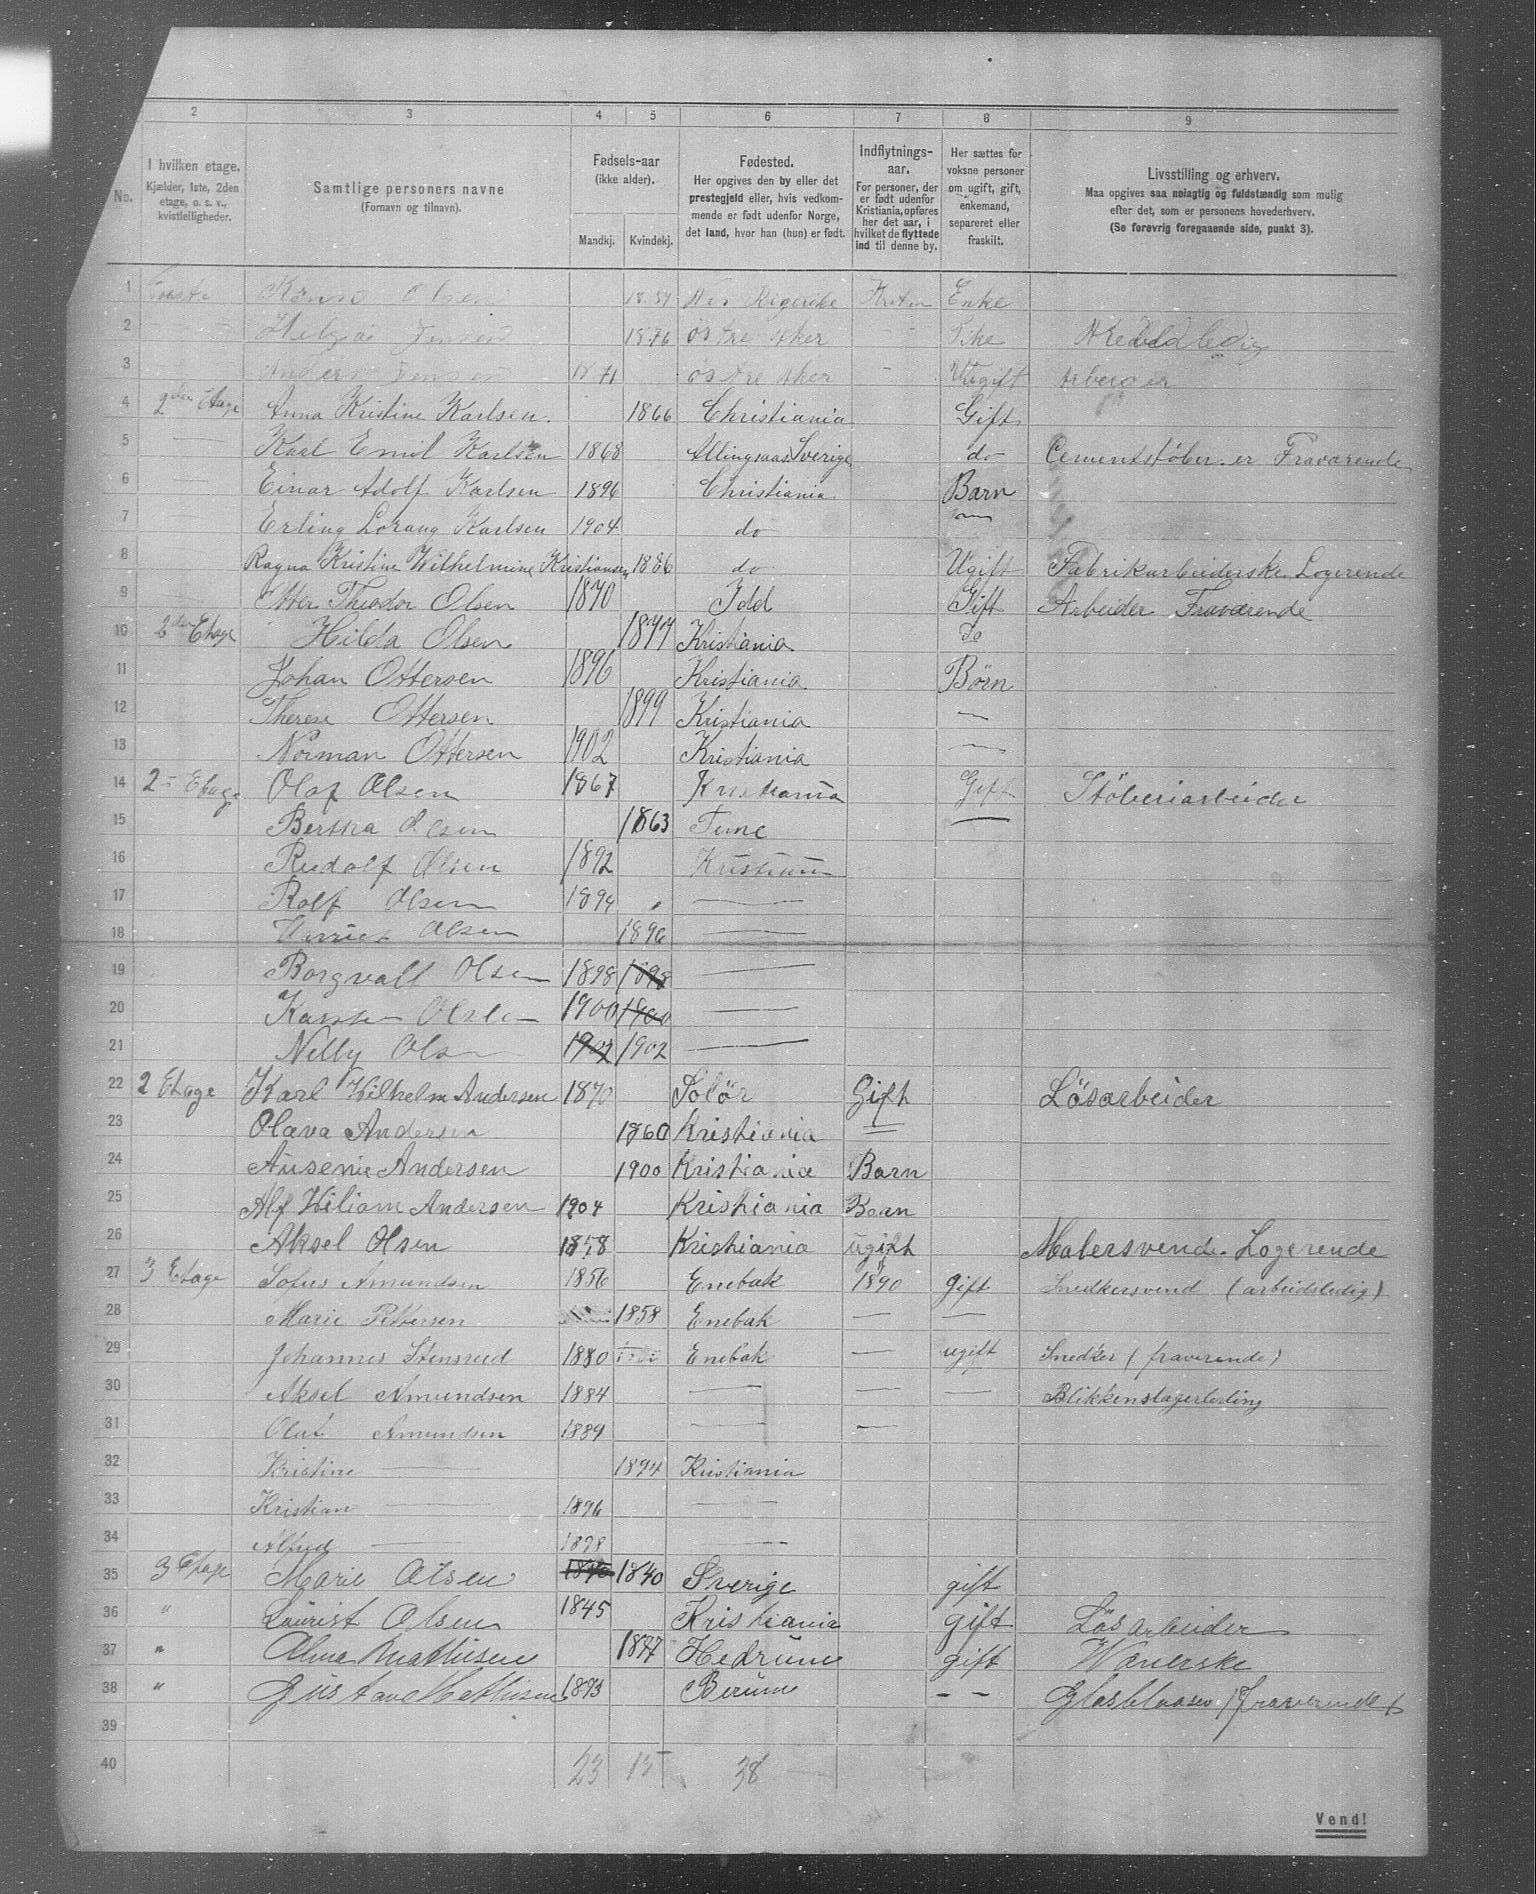 2 3 4 5 6 7 8 9
No.
I hvilken etage.
Kjælder, 1ste, 2den
etage, o. s. v.,
kvistleiligheder.
Samtlige personers navne
(Fornavn og tilnavn).
Fødsels-aar
(ikke alder).
Mandkj. Kvindekj.
Fødested.
Her opgives den by eller det
prestegjeld eller, hvis vedkom-
mende er født udenfor Norge,
det land, hvor han (hun) er født.
Indflytnings-
aar.
For personer, der
er født udenfor
Kristiania, opføres
her det aar, i
hvilket de flyttede
ind til denne by.
Her sættes for
voksne personer
om ugift, gift,
enkemand,
separeret eller
fraskilt.
Livsstilling og erhverv.
Maa opgives saa nøiagtig og fuldstændig som mulig
efter det, som er personens hovederhverv.
(Se forøvrig foregaaende side, punkt 3).
1 Olsen Enke
2 Helga Jensen 1876 østre Aker Pike
3 Anders Jensen 1871 østre Aker Ugift
4 2den Etage Anna Kristine Karlsen. 1866 Christiania Gift
5 — Karl Emil Karlsen 1868 Allingsaas Sverige do Cementstøber er Fraværende
6 — Einar Adolf Karlsen 1896 Christiania Barn
7 Erling Lorang Karlsen 1904 do —
8 Ragna Kristine Wilhelmine Kristiansen 1886 do Ugift Fabrikarbeiderske Logerende
9 Theodor Olsen 1870 Idd Gift Arbeider Fraværende
10 2den Etage Hilda Olsen 1877 Kristiania Do
11 Johan Ottersen 1896 Kristiania Børn
12 Therese Ottersen 1899 Kristiania —
13 Norman Ottersen 1902 Kristiania —
14 2 Etage Olaf Olsen 1867 Kristiania Gift Støberiarbeider
15 Bertha Olsen 1863 Tune —
16 Rudolf Olsen 1892 Kristiania
17 Rolf Olsen 1894 —
18 Olsen 1896 —
19 Borgvall Olsen 1898 1898 —
20 Karsten Olsen 1900 1900 —
21 Nelly Olsen 1902 1902 —
22 2 Etage Karl Wilhelm Andersen 1870 Solør Gift Løsarbeider
23 Olava Andersen 1860 Kristiania =
24 Ausenie Andersen 1900 Kristiania Barn
25 Alf Wiliam Andersen 1904 Kristiania Barn
26 Aksel Olsen 1858 Kristiania ugift Malersvend. Logerende
27 3 Etage Sofus Amundsen 1856 Enebak 1890 gift Snedkersvend (arbeidsledig)
28 Marie Pettersen 1858 Enebak — —
29 Johannes Stensrud 1880 Enebak — ugift Snedker (fraverende)
30 Aksel Amundsen 1884 — — — Blikkenslagerlerling
31 Olaf Amundsen 1889 — —
32 Kristine — 1894 Kristiania
33 Kristian — 1896 —
34 Alfred — 1898 —
35 3 Etage Marie Olsen 1840 1840 Sverige gift
36 " Laurist Olsen 1845 Kristiania gift Løsarbeider
37 " Alma Mathisen 1877 Hedrum gift Væverske
38 " Gustav Mathisen 1873 Berum — — Glasblaaser (fraverende)
39
40 23 15 38
Vend!